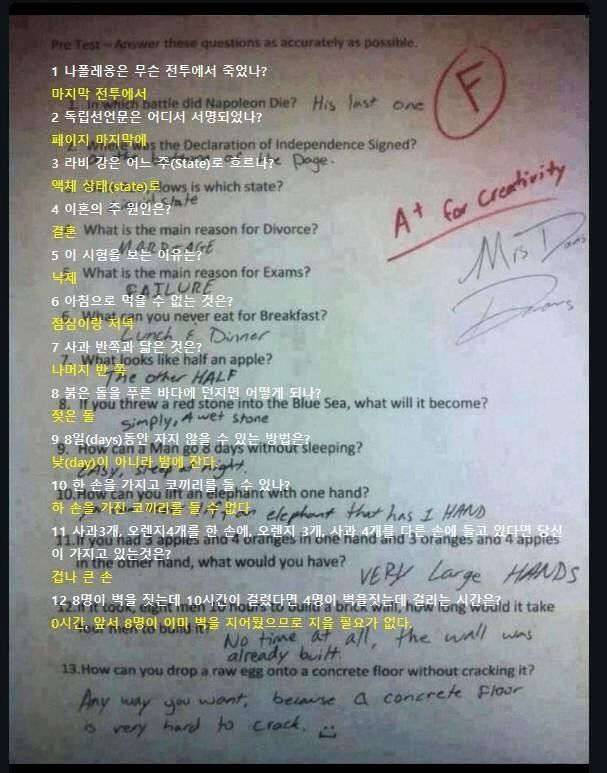 Pre Test – Answer these questions as accurately as possible.
F
1 나폴레옹은 무슨 전투에서 죽었나?
마지막 전투에서
1. In which battle did Napoleon Die? His last one
2 독립선언문은 어디서 서명되었나?
페이지 마지막에
2. Where was the Declaration of Independence Signed?
the Page.
3 라비 강은 어느 주(State)로 흐르나?
액체 상태(state)로
flows is which state?
state
A+ for Creativity
4 이혼의 주 원인은?
결혼
What is the main reason for Divorce?
MARRIAGE
Mrs
5 이 시험을 보는 이유는?
낙제
What is the main reason for Exams?
FAILURE
6 아침으로 먹을 수 없는 것은?
점심이랑 저녁
6. What can you never eat for Breakfast?
Lunch & Dinner
7 사과 반쪽과 닮은 것은?
나머지 반 쪽
7. What looks like half an apple?
The other HALF
8 붉은 돌을 푸른 바다에 던지면 어떻게 되나?
젖은 돌
8. If you threw a red stone into the Blue Sea, what will it become?
simply, A wet stone
9 8일(days)동안 자지 않을 수 있는 방법은?
낮(day)이 아니라 밤에 잔다.
9. How can a Man go 8 days without sleeping?
10 한 손을 가지고 코끼리를 들 수 있나?
하 손을 가진 코끼리를 들 수 없다
10. How can you lift an elephant with one hand?
elephant that has 1 HAND
11 사과3개, 오렌지4개를 한 손에, 오렌지 3개, 사과 4개를 다른 손에 들고 있다면 당신
이 가지고 있는것은?
11. If you had 3 apples and 4 oranges in one hand and 3 oranges and 4 apples
in the other hand, what would you have?
겁나 큰 손
VERY Large HANDS
12 8명이 벽을 짓는데 10시간이 걸렸다면 4명이 벽을짓는데 걸리는 시간은?
0시간, 앞서 8명이 이미 벽을 지어놨으므로 지을 필요가 없다.
12. If it took, eight men 10 hours to build a brick wall, how long would it take
four men to build it?
No time at all, the wall was
already built.
13. How can you drop a raw egg onto a concrete floor without cracking it?
Any way you want, because a concrete Floor
is very hard to crack.